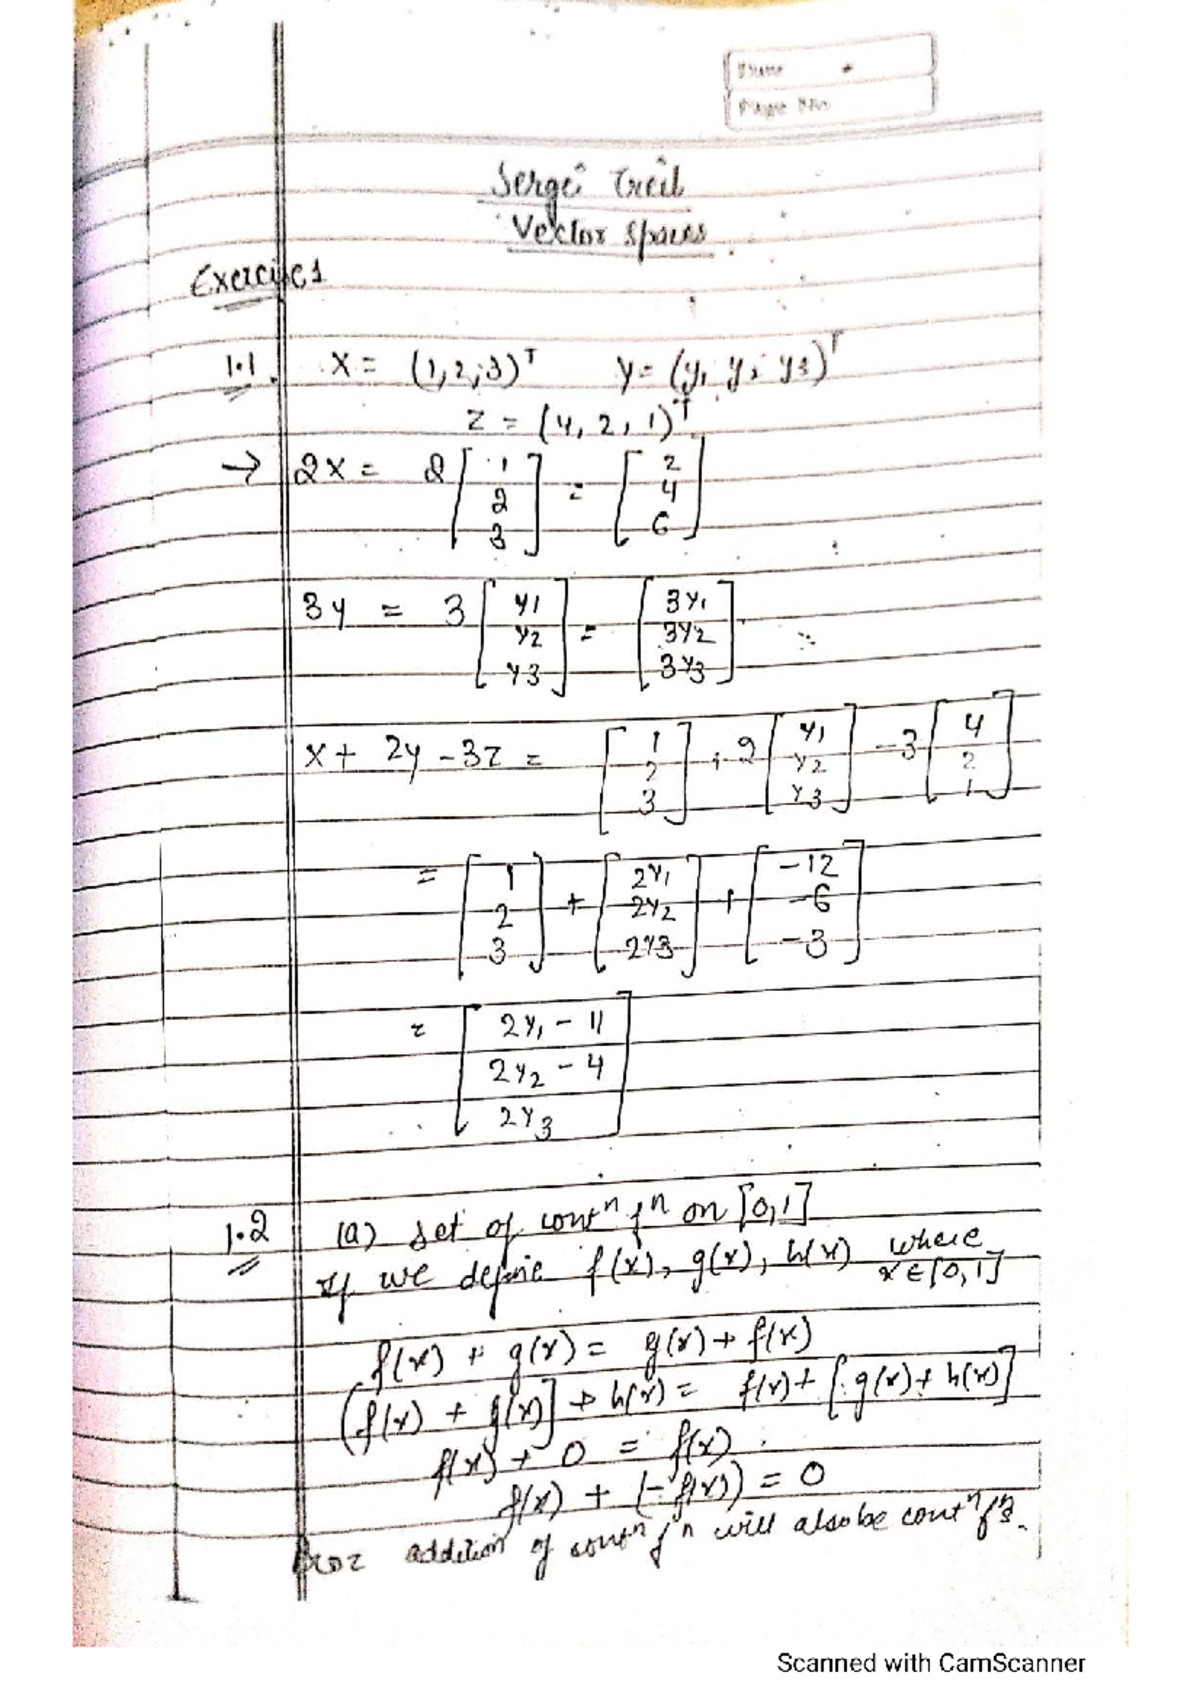 Page No.
Sergei Treil
Vector Spaces
Exercise 1
1.1. x = (1,2,3)ᵀ y = (y₁ y₂ y₃)ᵀ
z = (4, 2, 1)ᵀ
→ 2x = 2 [1 2 3] = [2 4 6]
3y = 3 [y1 y2 y3] = [3y₁ 3y2 3y3]
x + 2y - 3z = [1 2 3] + 2 [y1 y2 y3] - 3 [4 2 1]
= [1 2 3] + [2y₁ 2y2 2y3] + [-12 -6 -3]
= [2y₁ - 11 2y2 - 4 2y3]
1.2 (a) Set of contⁿ fⁿ on [0,1]
If we define f(x), g(x), h(x) where x ∈ [0,1]
f(x) + g(x) = g(x) + f(x)
(f(x) + g(x)] + h(x) = f(x) + [g(x) + h(x)]
f(x) + 0 = f(x)
f(x) + (-f(x)) = 0
addition of contⁿ fⁿ will also be contⁿ fⁿ.
Scanned with CamScanner